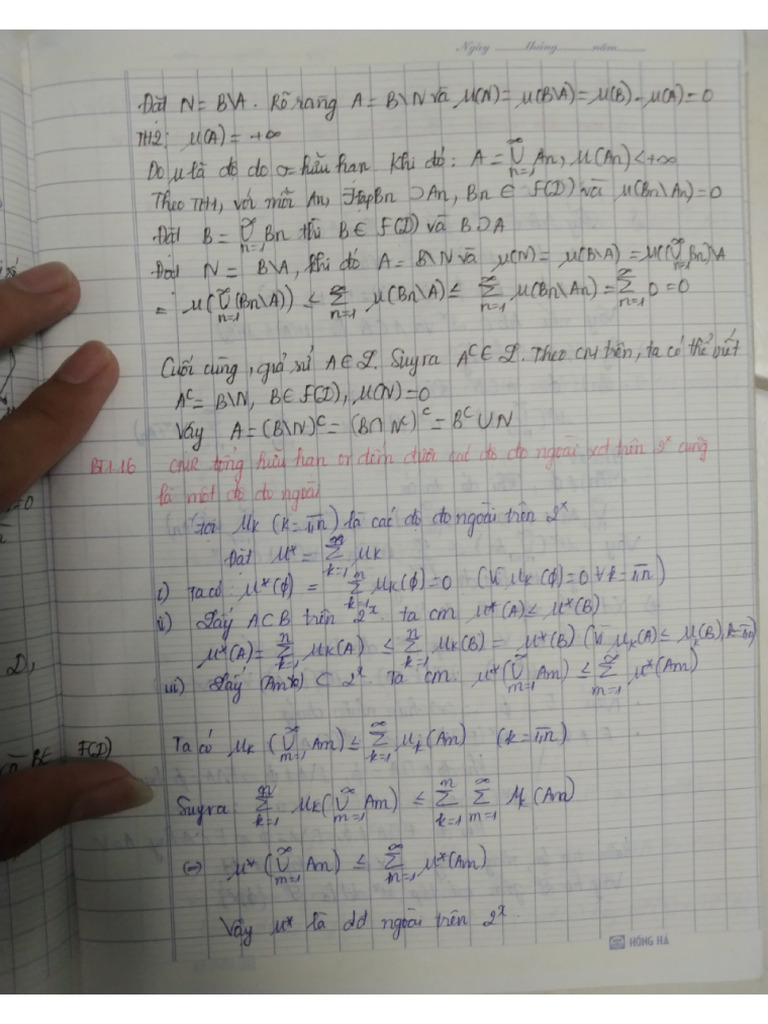 Ngày tháng năm
Đặt N = B\A. Rõ ràng A = B\N và μ(N) = μ(B\A) = μ(B) - μ(A) = 0
TH2: μ(A) = +∞
Do μ là độ đo σ-hữu hạn khi đó: A = ∪_{n=1}^{∞} An, μ(An) < +∞
Theo TH1, với mỗi An, ∃ tập Bn ⊃ An, Bn ∈ F(D) và μ(Bn\An) = 0
Đặt B = ∪_{n=1}^{∞} Bn thì B ∈ F(D) và B ⊃ A
Đặt N = B\A, khi đó A = B\N và μ(N) = μ(B\A) = μ(∪_{n=1}^{∞} Bn)\A
= μ(∪_{n=1}^{∞} (Bn\A)) ≤ Σ_{n=1}^{∞} μ(Bn\A) ≤ Σ_{n=1}^{∞} μ(Bn\An) = Σ_{n=1}^{∞} 0 = 0
Cuối cùng, giả sử A ∈ L. Suy ra A^C ∈ L. Theo cm trên, ta có thể viết
A^C = B\N, B ∈ F(D), μ(N) = 0
Vậy A = (B\N)^C = (B ∩ N^C)^C = B^C ∪ N
BT1.16 CMR tổng hữu hạn or đếm được các độ đo ngoài xđ trên 2^X cũng
là một độ đo ngoài
Gọi μk (k = 1,n) là các độ đo ngoài trên 2^X
Đặt μ* = Σ_{k=1}^{n} μk
i) Ta có μ*(∅) = Σ_{k=1}^{n} μk(∅) = 0 (Vì μk(∅) = 0 ∀k = 1,n)
ii) Lấy A ⊂ B trên 2^X. ta cm μ*(A) ≤ μ*(B)
μ*(A) = Σ_{k=1}^{n} μk(A) ≤ Σ_{k=1}^{n} μk(B) = μ*(B) (Vì μk(A) ≤ μk(B), k = 1,n)
iii) Lấy (Am) ⊂ 2^X. Ta cm. μ*(∪_{m=1}^{∞} Am) ≤ Σ_{m=1}^{∞} μ*(Am)
D,
BE F(D)
Ta có μk (∪_{m=1}^{∞} Am) ≤ Σ_{k=1}^{∞} μk(Am) (k = 1,n)
Suy ra Σ_{k=1}^{n} μk(∪_{m=1}^{∞} Am) ≤ Σ_{k=1}^{n} Σ_{m=1}^{∞} μk(Am)
(=) μ*(∪_{m=1}^{∞} Am) ≤ Σ_{m=1}^{∞} μ*(Am)
Vậy μ* là dđ ngoài trên 2^X.
HỒNG HÀ